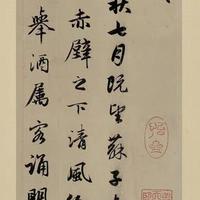 秋七月既望蘇子與
赤壁之下清風徐
舉酒属客誦明